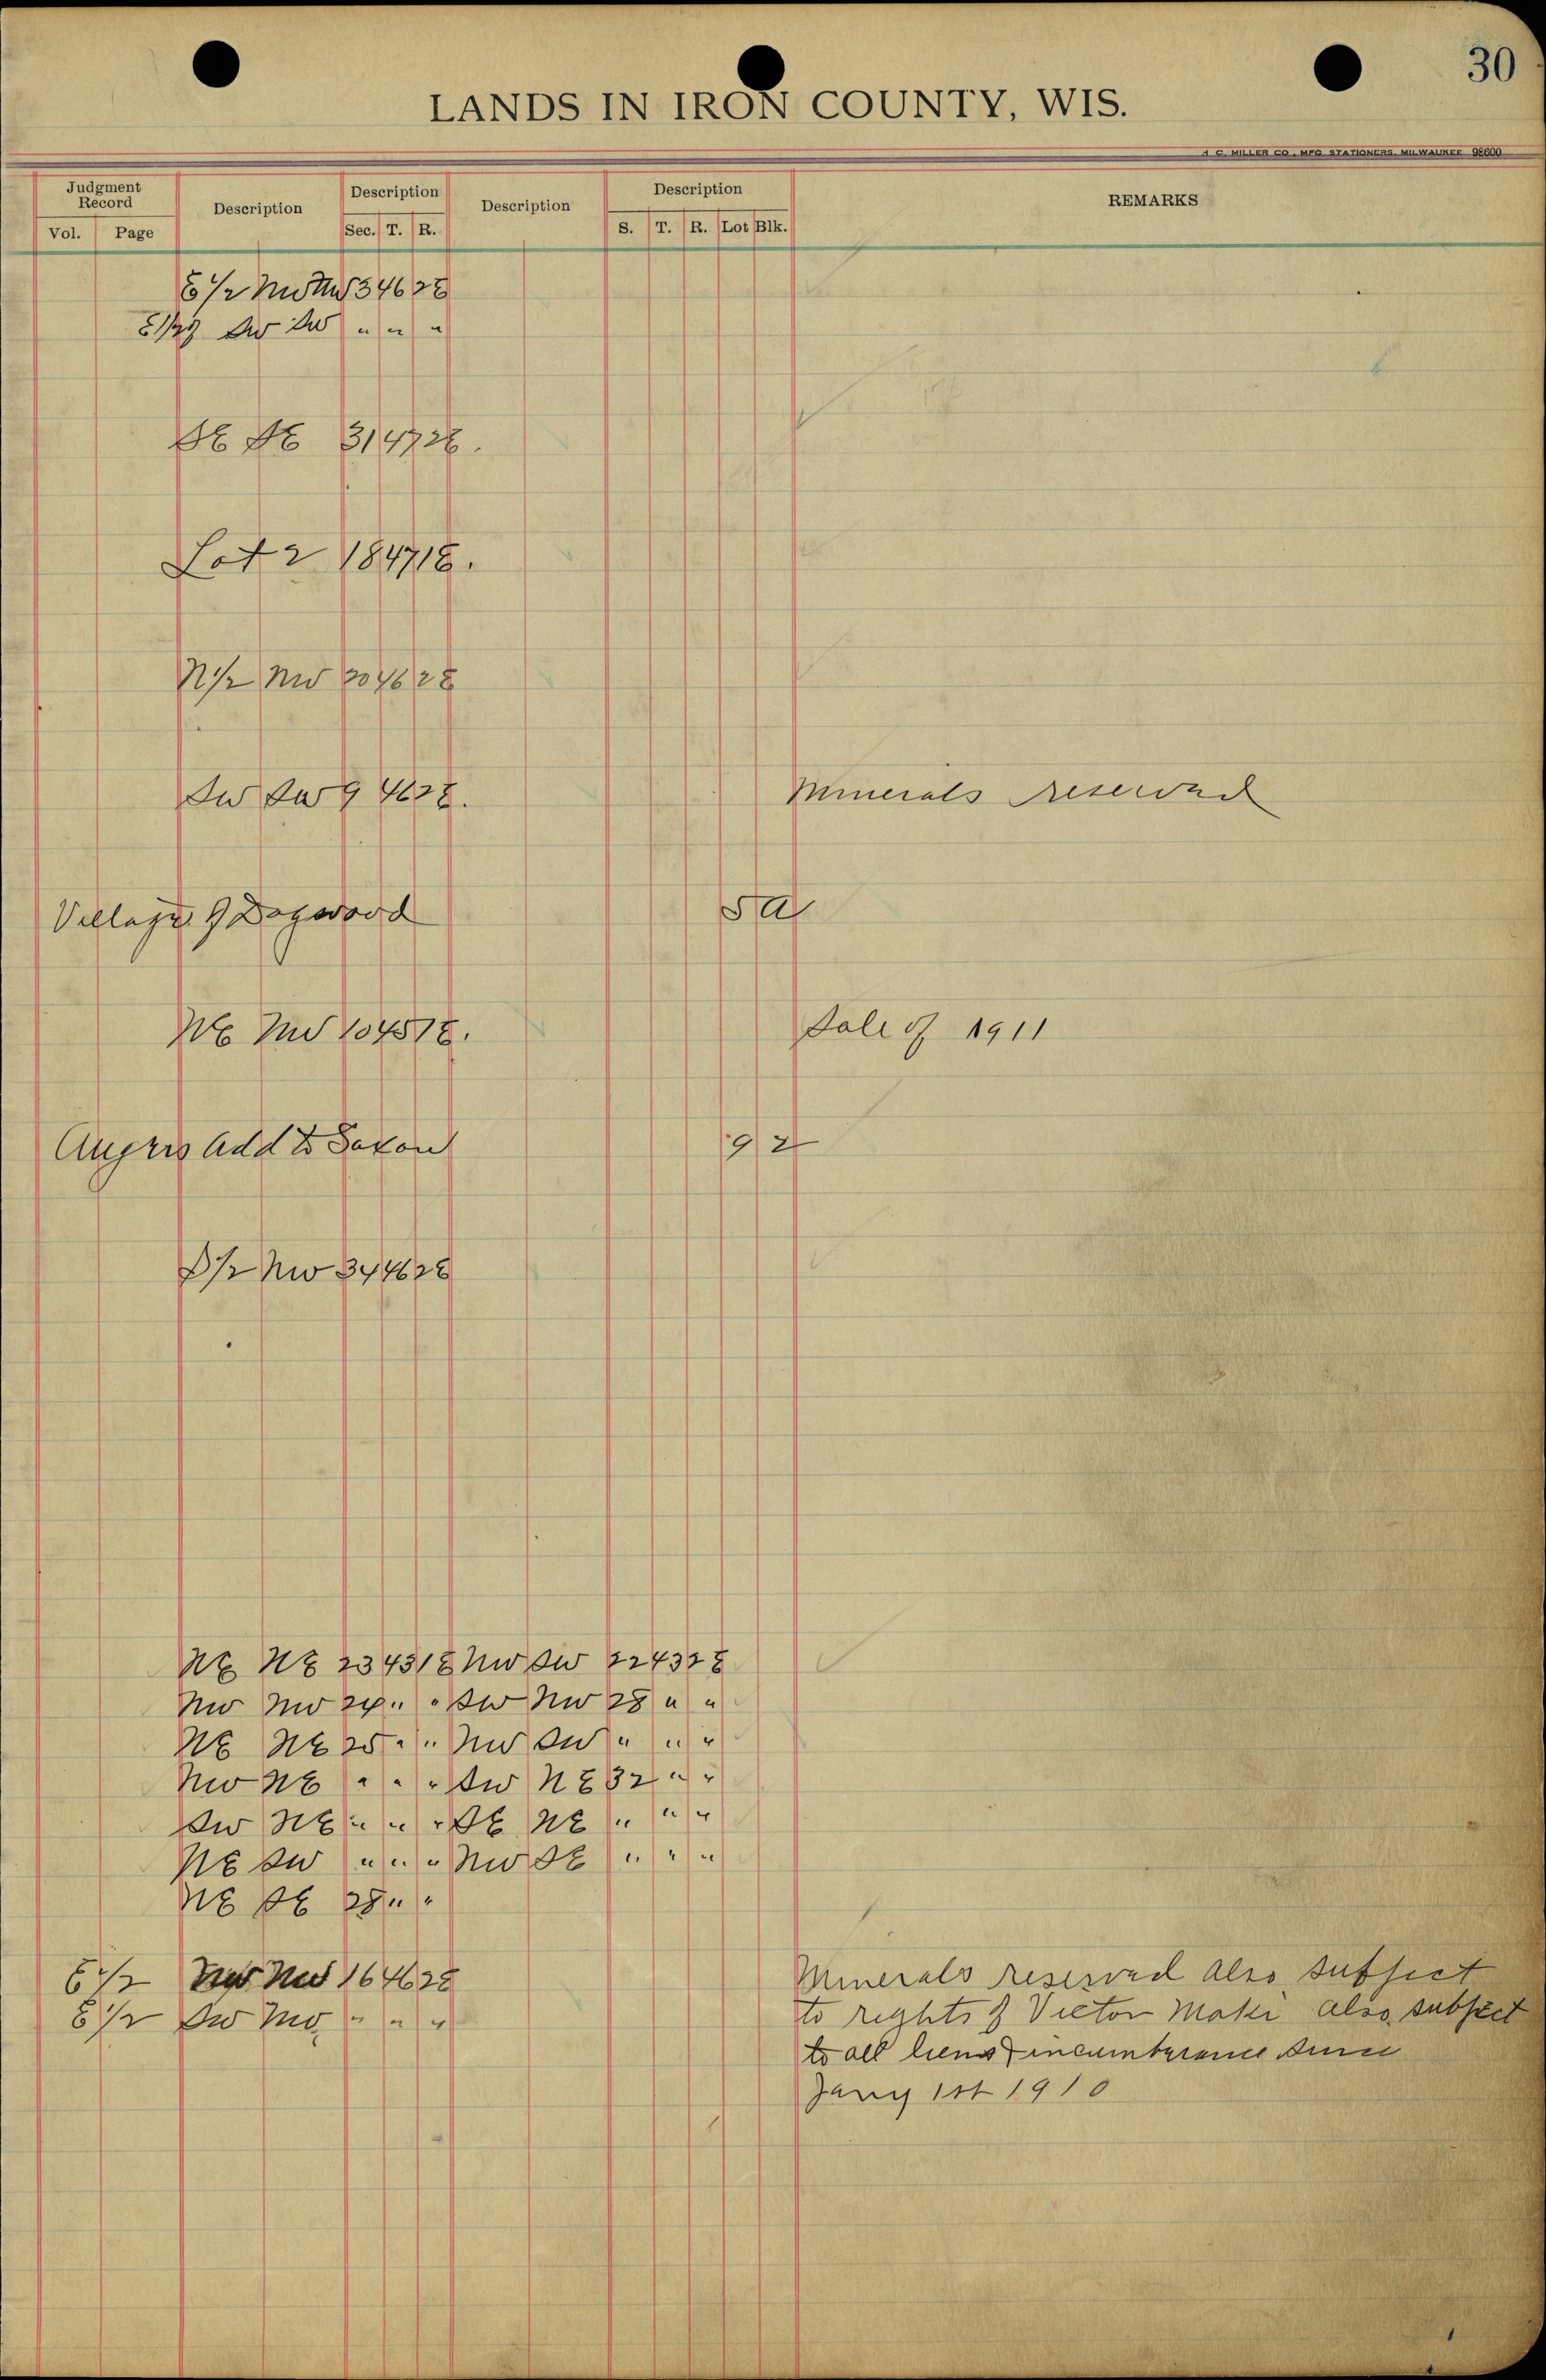 30
LANDS IN IRON COUNTY, WIS.
H. C. MILLER CO., MFG. STATIONERS, MILWAUKEE 98600
Judgment Record Description Description Description Description REMARKS
Vol. Page Sec. T. R. S. T. R. Lot Blk.
E 1/2 NW NW 34 46 2E
E 1/2 SW SW " " "
SE SE 31 47 2E.
Lot 2 18 47 1E.
N 1/2 NW 20 46 2E
SW SW 9 46 2E. Minerals reserved
Village of Dogwood 5 a
NE NW 10 45 1E. Sale of 1911
Add to Saxon 9 2
S 1/2 NW 34 46 2E
NE NE 23 43 1E NW SW 22 43 2E
NW NW 24 " " SW NW 28 " "
NE NE 25 " " NW SW " " "
NW NE " " " SW NE 32 " "
SW NE " " " SE NE " " "
NE SW " " " NW SE " " "
NE SE 28 " "
E 1/2 NW NW 16 46 2E Minerals reserved also subject
E 1/2 SW NW " " " to rights of Victor Maki also subject
to all liens & incumberance since
Jany 1st 1910